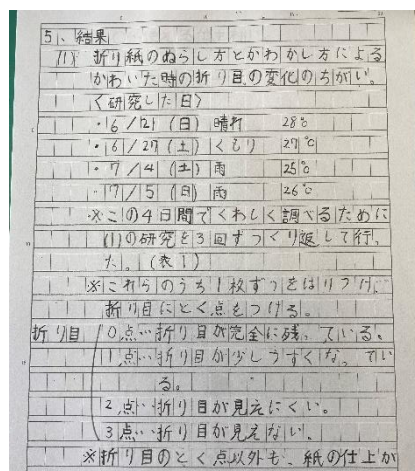 5、結果
(1) 折り紙のぬらし方とかわかし方による
かわいた時の折り目の変化のちがい。
〈研究した日〉
・6/21(日)晴れ 28℃
・6/27(土)くもり 27℃
・7/4(土)雨 25℃
・7/5(日)雨 26℃
※この4日間でくわしく調べるために
(1)の研究を3回ずつくり返して行っ
た。(表1)
※これらのうち1枚ずつをはりつけ、
折り目にとく点をつける。
折り目 0点…折り目が完全に残っている。
1点…折り目が少しうすくなってい
る。
2点…折り目が見えにくい。
3点…折り目が見えない。
※折り目のとく点以外も、紙の仕上が